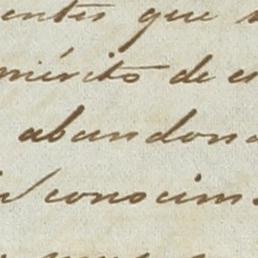 entes que
mérito de es
abandona
conocim